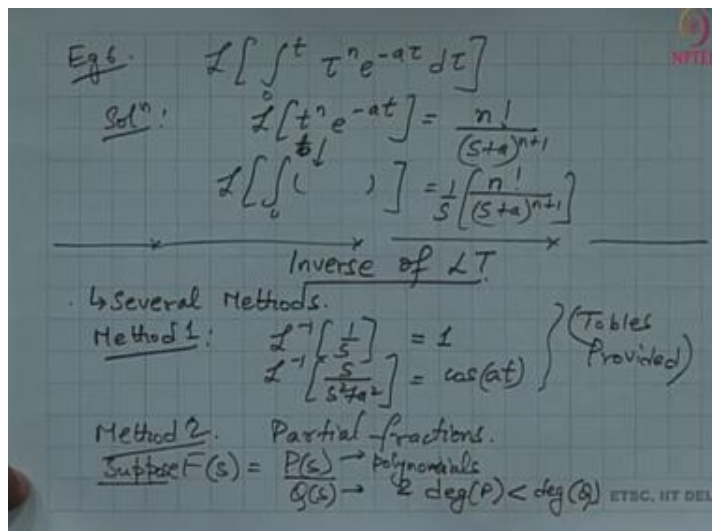 Eg 6. L[∫₀ᵗ τⁿ e^{-aτ} dτ]
NPTEL
Solⁿ: L[tⁿ e^{-at}] = n!/(s+a)^{n+1}
L[∫₀ᵗ ( )] = 1/s [n!/(s+a)^{n+1}]
Inverse of LT
↳ Several Methods.
Method 1: L⁻¹[1/s] = 1 } (Tables
L⁻¹[s/(s²+a²)] = cos(at) Provided)
Method 2. Partial fractions.
Suppose F(s) = P(s)/Q(s) → polynomials
→ & deg(P) < deg(Q)
ETSC, IIT DEL